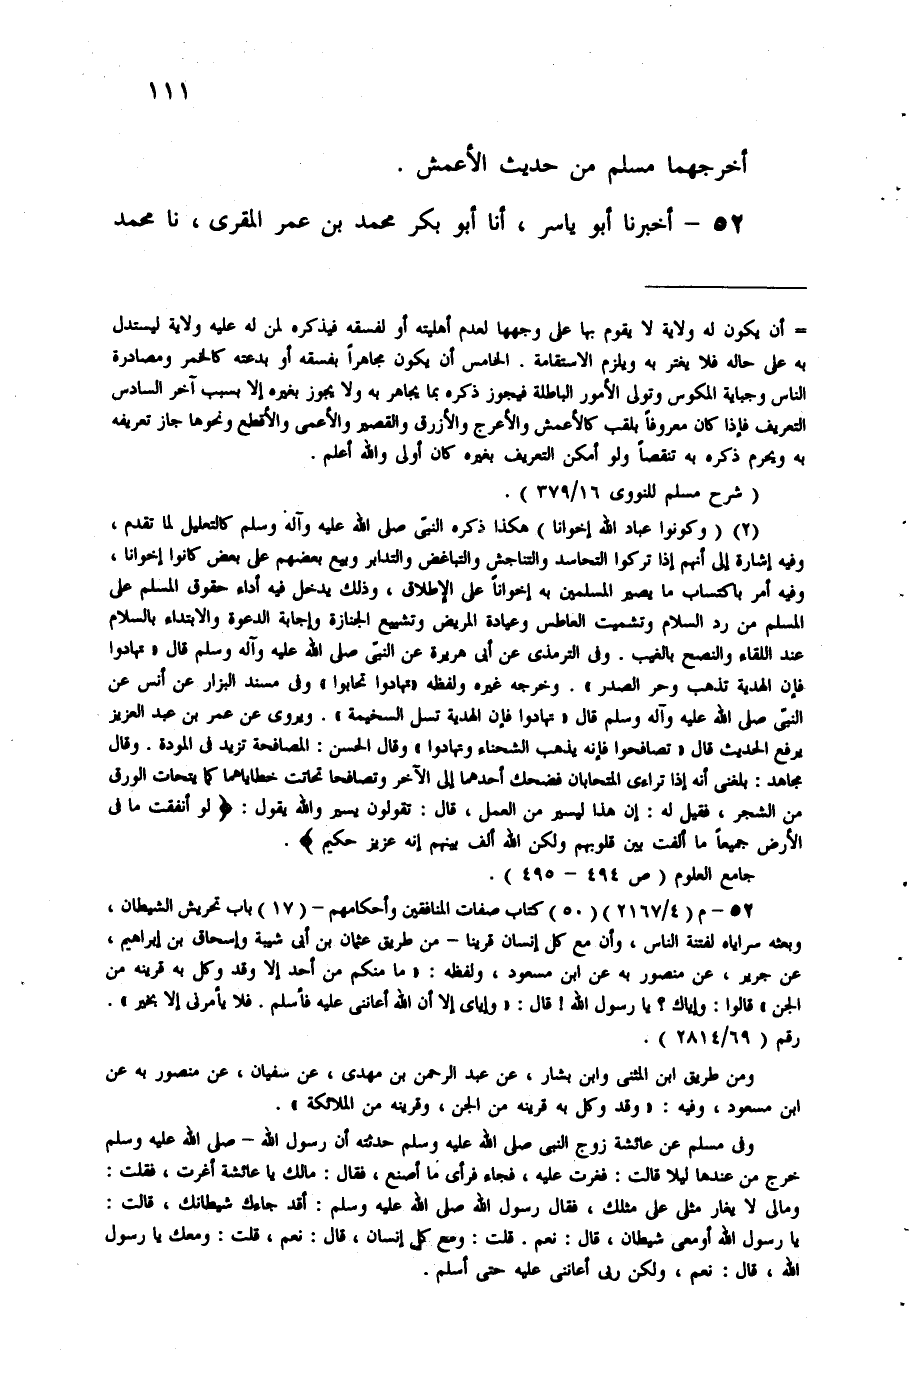 ١١١
أخرجهما مسلم من حديث الأعمش .
٥٢ – أخبرنا أبو ياسر ، أنا أبو بكر محمد بن عمر المقرى ، نا محمد
= أن يكون له ولاية لا يقوم بها على وجهها لعدم أهليته أو لفسقه فيذكره لمن له عليه ولاية ليستدل
به على حاله فلا يغتر به ويلزم الاستقامة . الخامس أن يكون مجاهراً بفسقه أو بدعته كالخمر ومصادرة
الناس وجباية المكوس وتولى الأمور الباطلة فيجوز ذكره بما يجاهر به ولا يجوز بغيره إلا بسبب آخر السادس
التعريف فإذا كان معروفاً بلقب كالأعمش والأعرج والأزرق والقصير والأعمى والأقطع ونحوها جاز تعريفه
به ويحرم ذكره به تنقصاً ولو أمكن التعريف بغيره كان أولى والله أعلم .
( شرح مسلم للنووى ٣٧٩/١٦ ) .
(٢) ( وكونوا عباد الله إخوانا ) هكذا ذكره النبّى صلى الله عليه وآله وسلم كالتعليل لما تقدم ،
وفيه إشارة إلى أنهم إذا تركوا التحاسد والتناجش والتباغض والتدابر وبيع بعضهم على بعض كانوا إخوانا ،
وفيه أمر باكتساب ما يصير المسلمين به إخواناً على الإطلاق ، وذلك يدخل فيه أداء حقوق المسلم على
المسلم من رد السلام وتشميت العاطس وعيادة المريض وتشييع الجنازة وإجابة الدعوة والابتداء بالسلام
عند اللقاء والنصح بالغيب . وفى الترمذى عن أبى هريرة عن النبّى صلى الله عليه وآله وسلم قال « تهادوا
فإن الهدية تذهب وحر الصدر » . وخرجه غيره ولفظه «تهادوا تحابوا» وفى مسند البزار عن أنس عن
النبّى صلى الله عليه وآله وسلم قال « تهادوا فإن الهدية تسل السخيمة » . ويروى عن عمر بن عبد العزيز
يرفع الحديث قال « تصافحوا فإنه يذهب الشحناء وتهادوا » وقال الحسن : المصافحة تزيد فى المودة . وقال
مجاهد : بلغنى أنه إذا تراءى المتحابان فضحك أحدهما إلى الآخر وتصافحا تحاتت خطاياهما كما يتحات الورق
من الشجر ، فقيل له : إن هذا ليسير من العمل ، قال : تقولون يسير والله يقول : ﴿ لو أنفقت ما فى
الأرض جميعاً ما ألفت بين قلوبهم ولكن الله ألف بينهم إنه عزيز حكيم ﴾ .
جامع العلوم ( ص ٤٩٤ – ٤٩٥ ) .
٥٢ – م ( ٢١٦٧/٤ ) ( ٥٠ ) كتاب صفات المنافقين وأحكامهم – ( ١٧ ) باب تحريش الشيطان ،
وبعثه سراياه لفتنة الناس ، وأن مع كل إنسان قرينا – من طريق عثمان بن أبى شيبة وإسحاق بن إبراهيم ،
عن جرير ، عن منصور به عن ابن مسعود ، ولفظه : « ما منكم من أحد إلا وقد وكل به قرينه من
الجن » قالوا : وإياك ؟ يا رسول الله ! قال : « وإياى إلا أن الله أعاننى عليه فأسلم . فلا يأمرنى إلا بخير » .
رقم ( ٢٨١٤/٦٩ ) .
ومن طريق ابن المثنى وابن بشار ، عن عبد الرحمن بن مهدى ، عن سفيان ، عن منصور به عن
ابن مسعود ، وفيه : « وقد وكل به قرينه من الجن ، وقرينه من الملائكة » .
وفى مسلم عن عائشة زوج النبى صلى الله عليه وسلم حدثته أن رسول الله – صلى الله عليه وسلم
خرج من عندها ليلا قالت : فغرت عليه ، فجاء فرأى ما أصنع ، فقال : مالك يا عائشة أغرت ، فقلت :
ومالى لا يغار مثلى على مثلك ، فقال رسول الله صلى الله عليه وسلم : أقد جاءك شيطانك ، قالت :
يا رسول الله أومعى شيطان ، قال : نعم . قلت : ومع كل إنسان ، قال : نعم ، قلت : ومعك يا رسول
الله ، قال : نعم ، ولكن ربى أعاننى عليه حتى أسلم .